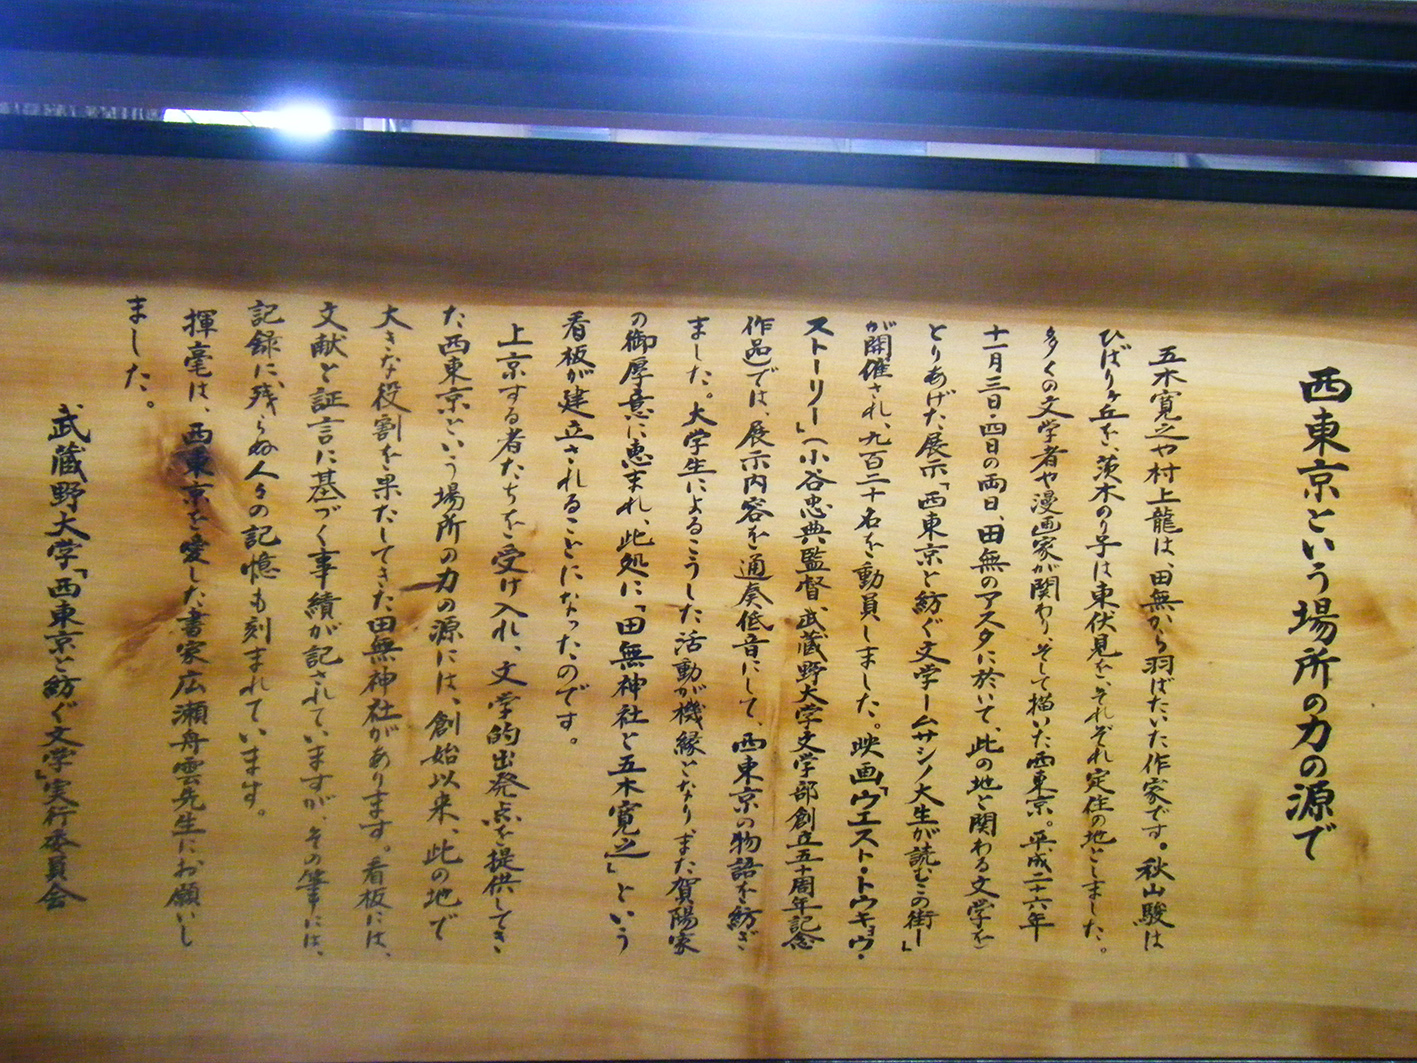 西東京という場所の力の源で
五木寛之や村上龍は、田無から羽ばたいた作家です。秋山駿は
ひばりヶ丘を、茨木のり子は東伏見を、それぞれ定住の地としました。
多くの文学者や漫画家が関わり、そして描いた西東京。平成二十六年
十一月三日・四日の両日、田無のアスタに於いて、此の地と関わる文学を
とりあげた展示「西東京を紡ぐ文学ームサシノ大生が読むこの街ー」
が開催され、九百二十名を動員しました。映画「ウエスト・トウキョウ・
ストーリー」(小谷忠典監督、武蔵野大学文学部創立五十周年記念
作品)では、展示内容を通奏低音にして、西東京の物語を紡ぎ
ました。大学生によるこうした活動が機縁となり、また賀陽家
の御厚意に恵まれ、此処に「田無神社と五木寛之」という
看板が建立されることになったのです。
上京する者たちを受け入れ、文学的出発点を提供してき
た西東京という場所の力の源には、創始以来、此の地で
大きな役割を果たしてきた田無神社があります。看板には、
文献と証言に基づく事績が記されていますが、その筆には、
記録に残らぬ人々の記憶も刻まれています。
揮毫は、西東京を愛した書家広瀬舟雲先生にお願いし
ました。
武蔵野大学「西東京を紡ぐ文学」実行委員会